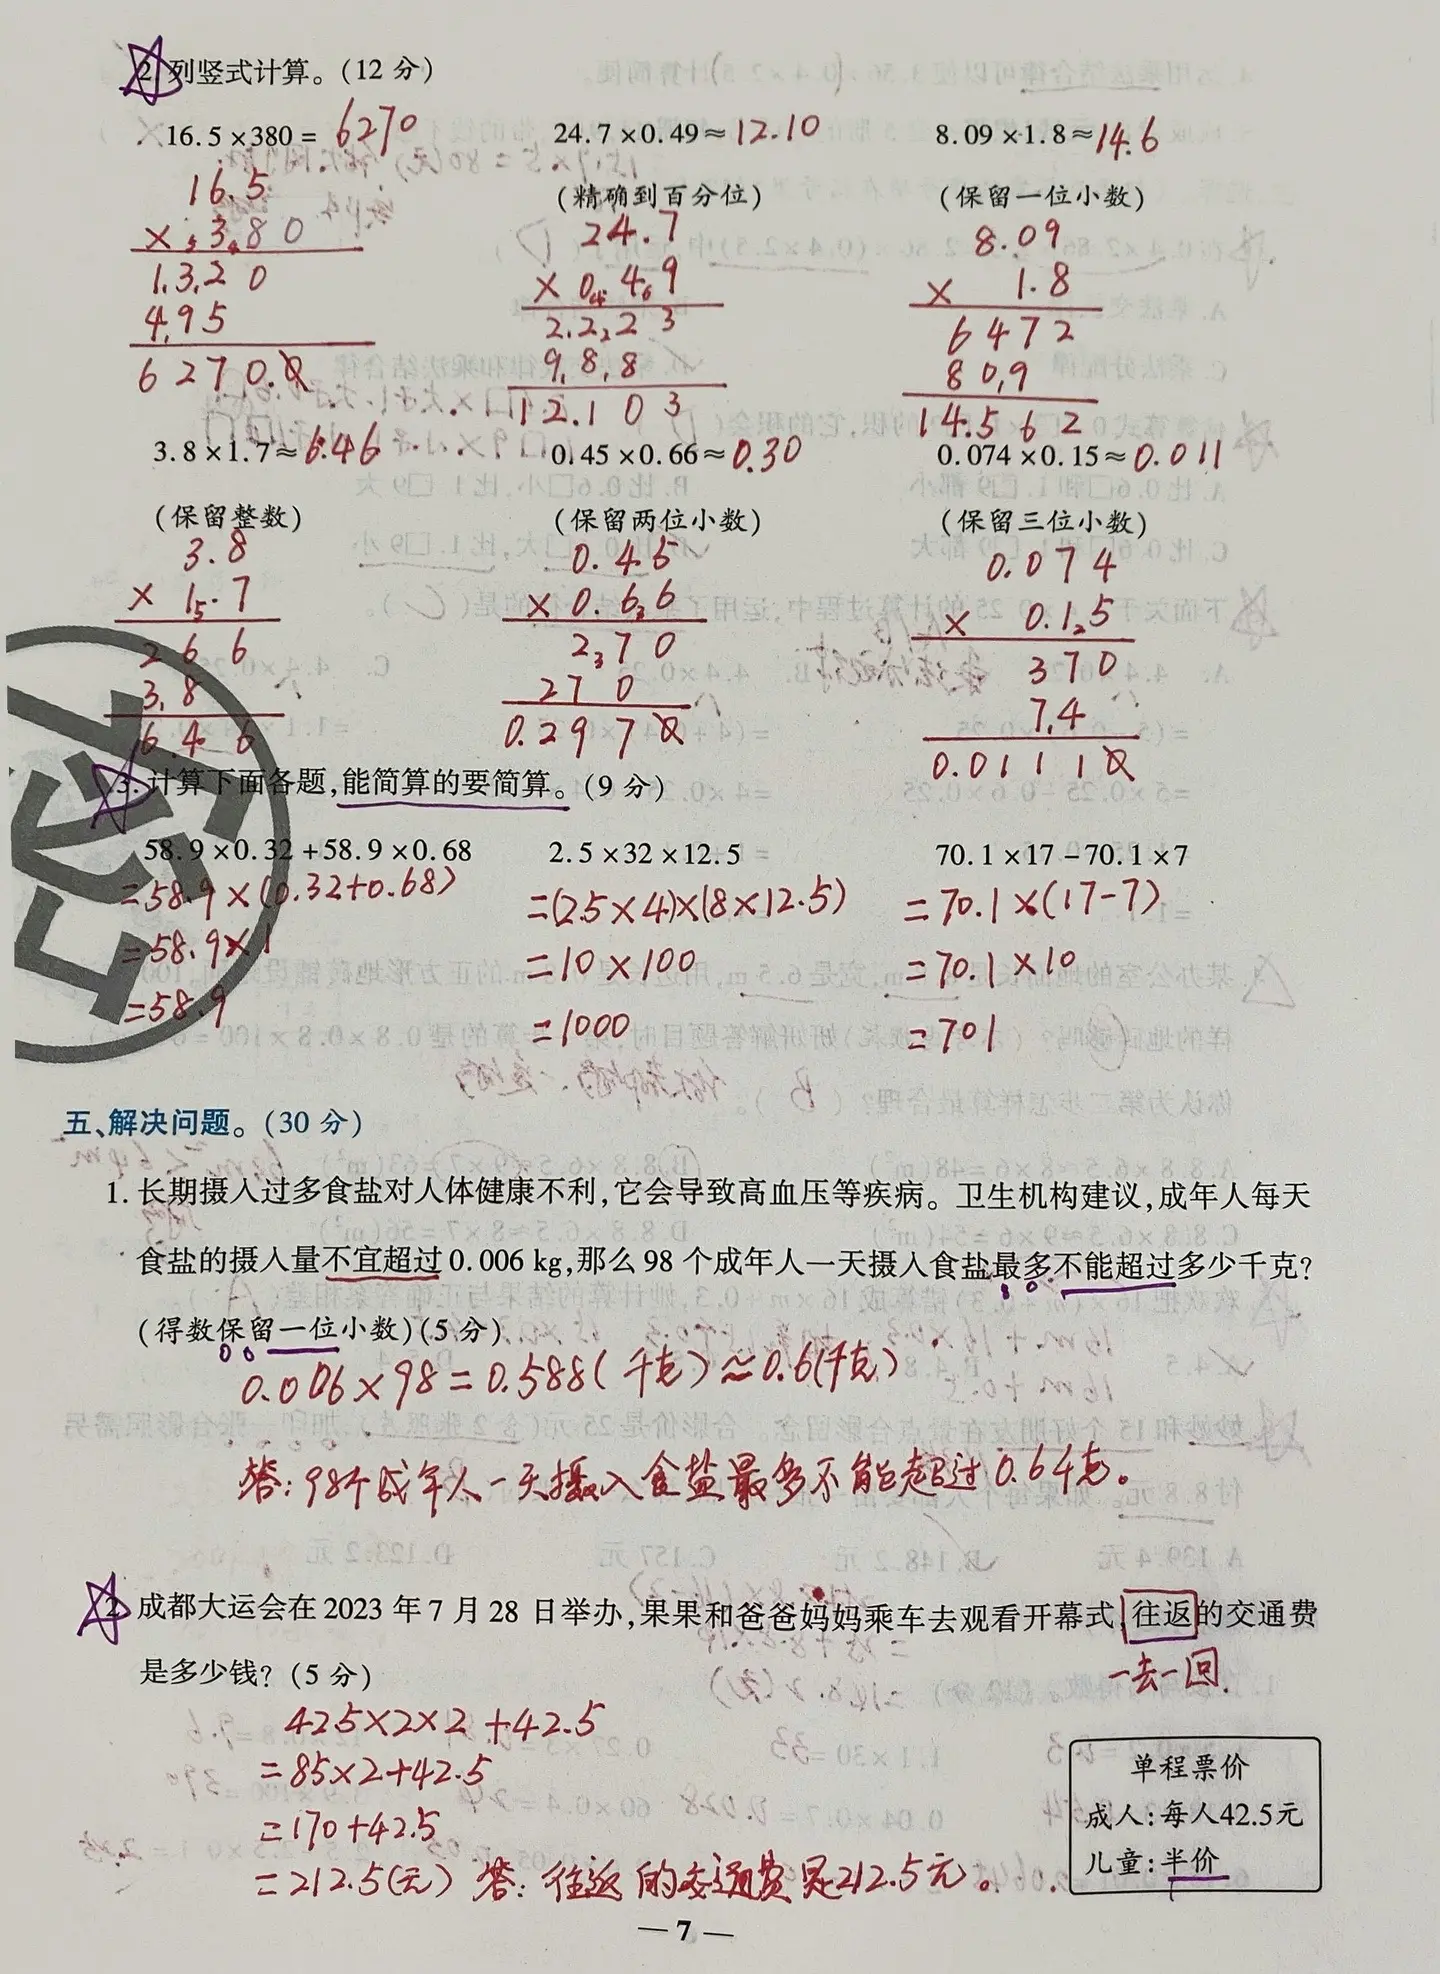 2. 列竖式计算。(12 分)
16.5×380= 6270
24.7×0.49≈12.10
8.09×1.8≈14.6
(精确到百分位)
(保留一位小数)
16.5
×380
1320
495
6270.0
24.7
×0.49
2223
988
12.103
8.09
×1.8
6472
809
14.562
3.8×1.7≈6.46
0.45×0.66≈0.30
0.074×0.15≈0.011
(保留整数)
(保留两位小数)
(保留三位小数)
3.8
×1.7
266
38
6.46
0.45
×0.66
270
270
0.2970
0.074
×0.15
370
74
0.01110
3. 计算下面各题,能简算的要简算。(9 分)
58.9×0.32+58.9×0.68
=58.9×(0.32+0.68)
=58.9×1
=58.9
2.5×32×12.5
=(2.5×4)×(8×12.5)
=10×100
=1000
70.1×17-70.1×7
=70.1×(17-7)
=70.1×10
=701
五、解决问题。(30 分)
1. 长期摄入过多食盐对人体健康不利,它会导致高血压等疾病。卫生机构建议,成年人每天
食盐的摄入量不宜超过0.006 kg,那么98个成年人一天摄入食盐最多不能超过多少千克?
(得数保留一位小数)(5 分)
0.006×98=0.588(千克)≈0.6(千克)
答:98个成年人一天摄入食盐最多不能超过0.6千克。
2. 成都大运会在2023年7月28日举办,果果和爸爸妈妈乘车去观看开幕式,往返的交通费
是多少钱?(5 分)
一去一回.
425×2×2+42.5
=85×2+42.5
=170+42.5
=212.5(元) 答:往返的交通费是212.5元。
单程票价
成人:每人42.5元
儿童:半价
—7—